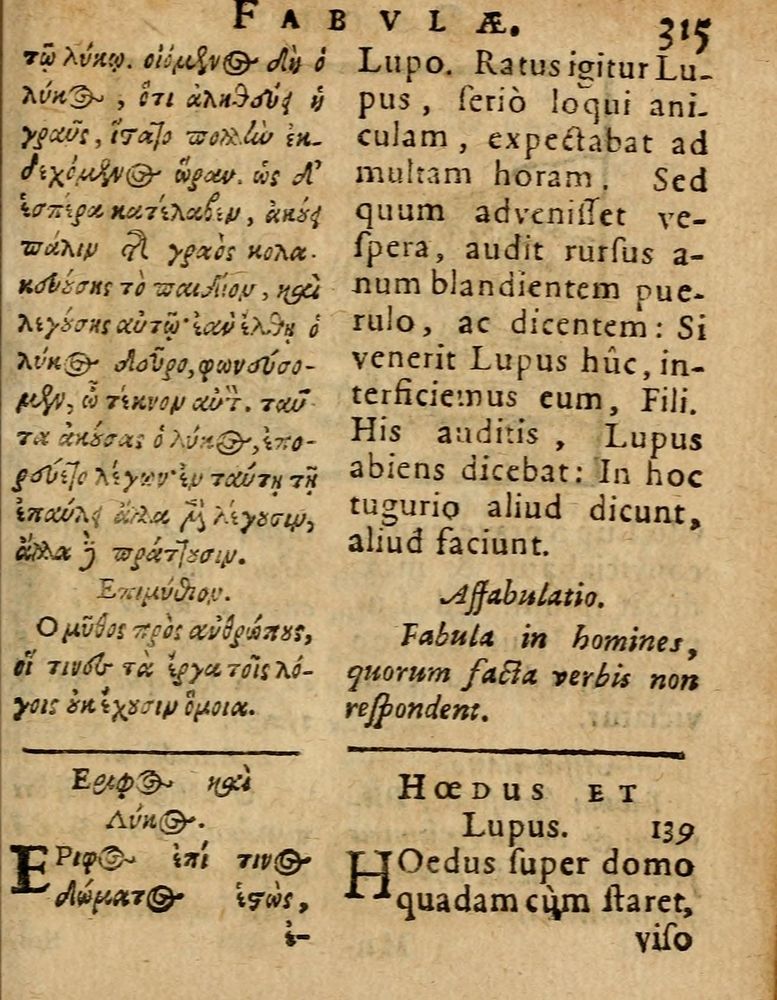 FABVLÆ. 315
τῷ λύκῳ. οἰόμενος δὲ ὁ
λύκος, ὅτι ἀληθεύει ἡ
γραῦς, ἵστατο πολλὴν ἐκ-
δεχόμενος ὥραν. ὡς δ'
ἑσπέρα κατέλαβεν, ἀκούει
πάλιν τῆς γραὸς κολα-
κευούσης τὸ παιδίον, καὶ
λεγούσης αὐτῷ· ἐὰν ἔλθῃ ὁ
λύκος δεῦρο, φονεύσο-
μεν, ὦ τέκνον αὐτόν. ταῦ-
τα ἀκούσας ὁ λύκος, ἐπο-
ρεύετο λέγων· ἐν ταύτῃ τῇ
ἐπαύλει ἄλλα μὲν λέγουσιν,
ἄλλα δὲ πράττουσιν.
Επιμύθιον.
Ο μῦθος πρὸς ἀνθρώπους,
οἵ τινες τὰ ἔργα τοῖς λό-
γοις οὐκ ἔχουσιν ὅμοια.
Εριφος καὶ
Λύκος.
ΕΡιφος ἐπί τινος
δώματος ἑστὼς,
ἐ-
Lupo. Ratus igitur Lu-
pus, ſeriò loqui ani-
culam, expectabat ad
multam horam. Sed
quum adveniſſet ve-
ſpera, audit rurſus a-
num blandientem pue-
rulo, ac dicentem: Si
venerit Lupus hûc, in-
terficiemus eum, Fili.
His auditis, Lupus
abiens dicebat: In hoc
tugurio aliud dicunt,
aliud faciunt.
Affabulatio.
Fabula in homines,
quorum facta verbis non
reſpondent.
HŒDUS ET
Lupus. 139
HOedus ſuper domo
quadam cùm ſtaret,
viſo